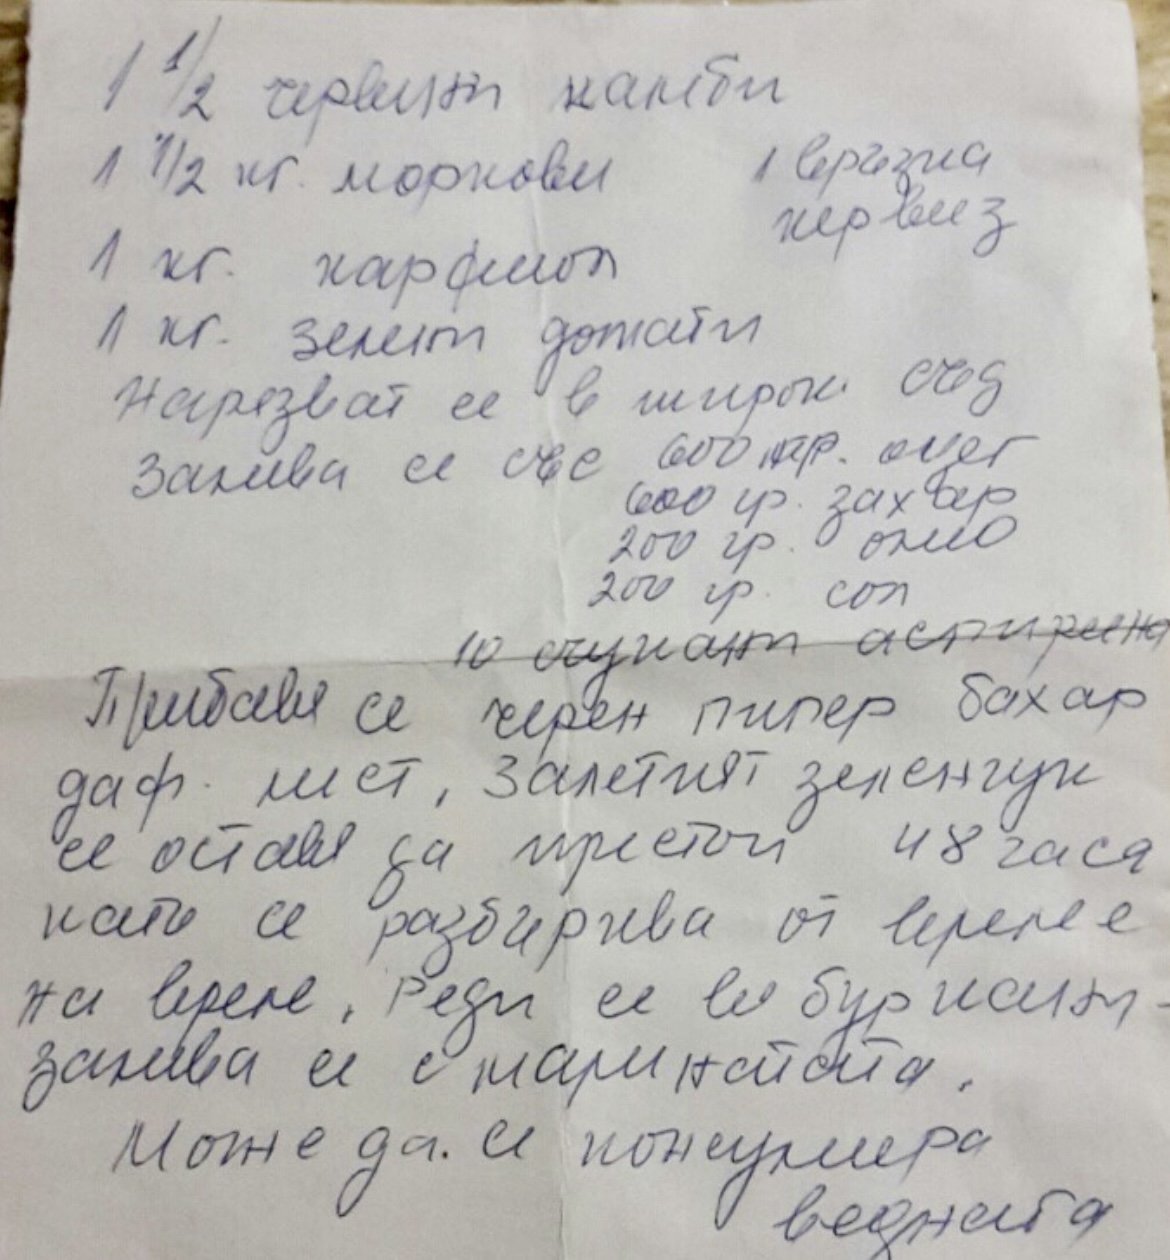 1 1/2 червени камби
1 1/2 кг. моркови
1 връзка
кервиз
1 кг. карфиол
1 кг. зелени домати
Нарязват се в широк съд
Залива се със 600 гр. оцет
600 гр. захар
200 гр. олио
200 гр. сол
10 счукани аспирина
Прибавя се черен пипер бахар
даф. лист, Залетият зеленчук
се оставя да престои 48 часа
като се разбърква от време
на време, Реди се в буркани
залива се с марината.
Може да се консумира
веднага